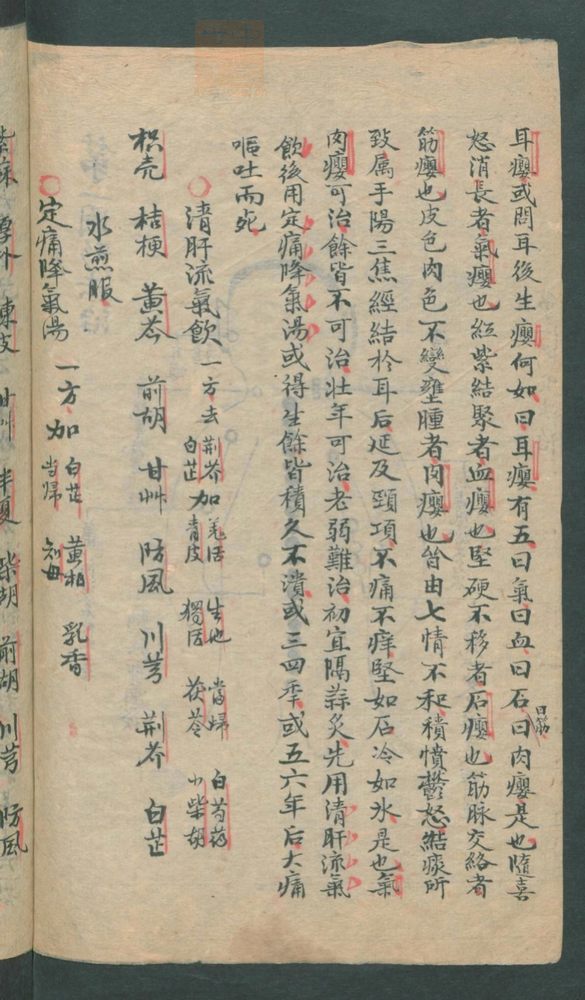 耳癭或問耳後生癭何如曰耳癭有五曰氣曰血曰石曰肉癭是也隨喜
曰筋
怒消長者氣癭也紅紫結聚者血癭也堅硬不移者石癭也筋脉交絡者
筋癭也皮色肉色不變壅腫者肉癭也皆由七情不和積憤鬱怒結痰所
致属手陽三焦經結於耳后延及頸項不痛不痒堅如石冷如氷是也氣
肉癭可治餘皆不可治壮年可治老弱難治初宜隔蒜灸先用清肝流氣
飲後用定痛降氣湯或得生餘皆積久不潰或三四季或五六年后大痛
嘔吐而死
清肝流氣飲 一方去荆芥白芷加羌活青皮 生地獨活 當歸茯苓 白芍药小柴胡
枳壳 桔梗 黄芩 前胡 甘艸 防風 川芎 荆芥 白芷
水煎服
定痛降氣湯 一方加白芷当歸 黄柏知母 乳香
陳皮 甘艸 半夏 柴胡 前胡 川芎 防風